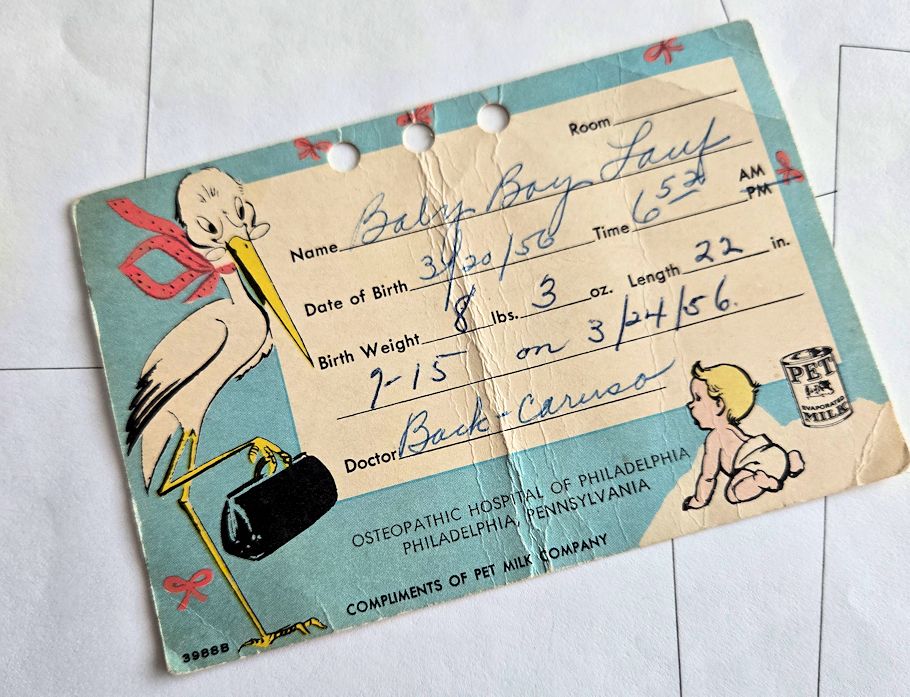 Room
Name Baby Boy Lauf
Date of Birth 3/20/56 Time 6 53 AM PM
Birth Weight 8 lbs. 3 oz. Length 22 in.
7-15 on 3/24/56.
Doctor Back-Caruso
PET
EVAPORATED
MILK
OSTEOPATHIC HOSPITAL OF PHILADELPHIA
PHILADELPHIA, PENNSYLVANIA
COMPLIMENTS OF PET MILK COMPANY
3988B